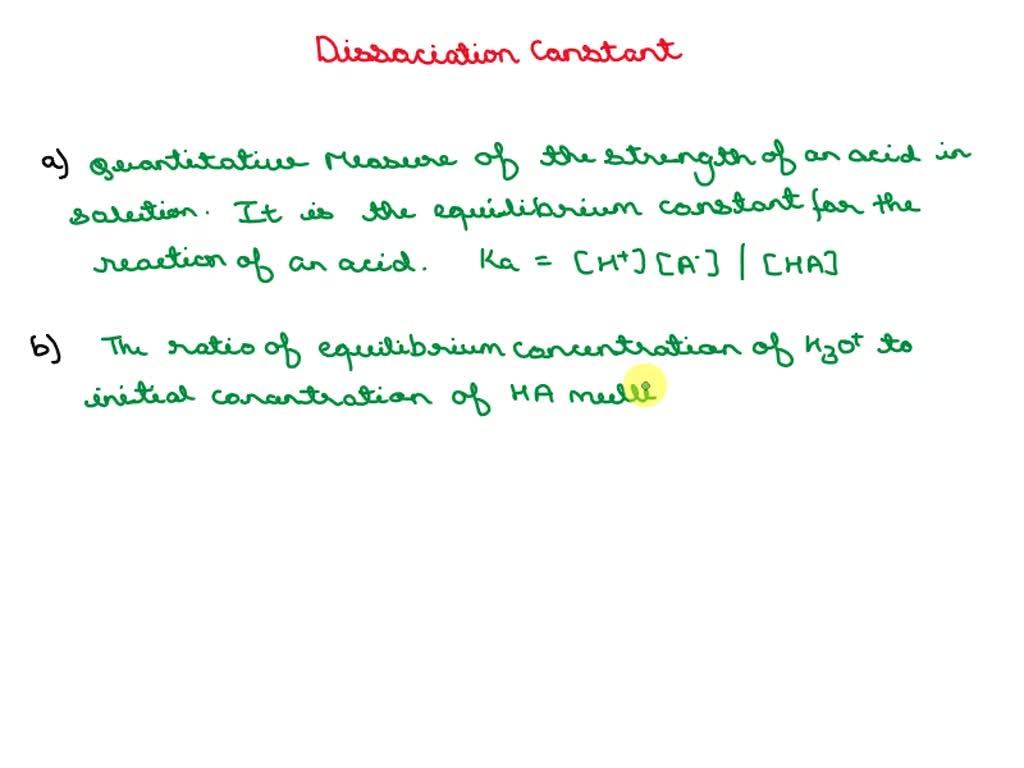 Dissociation Constant
a) Quantitative Measure of the strength of an acid in
solution. It is the equilibrium constant for the
reaction of an acid. Ka = [H⁺][A⁻] | [HA]
b) The ratio of equilibrium concentration of H₃O⁺ to
initial concentration of HA